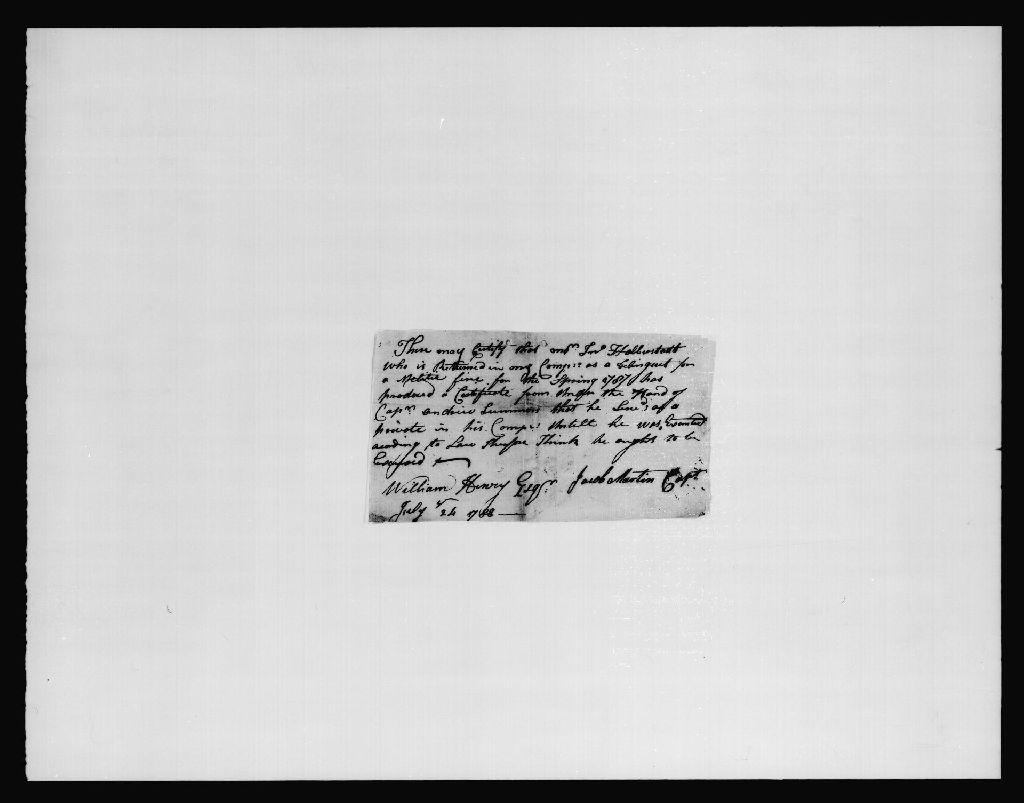 These may Certify that mr. Jno. Halberstatt
who is Returned in my Compy. as a Delinquet for
a Melitia fine for the Spring 1787 has
produced a Certificate from Under the Hand of
Capn. andrew Summers that he Servd as a
private in his Compy. Untill he was Exemted
acording to Law therfore I Think he ought to be
Excused
William Henry Esqr. Jacob Martin Capt.
July ye 24 1788